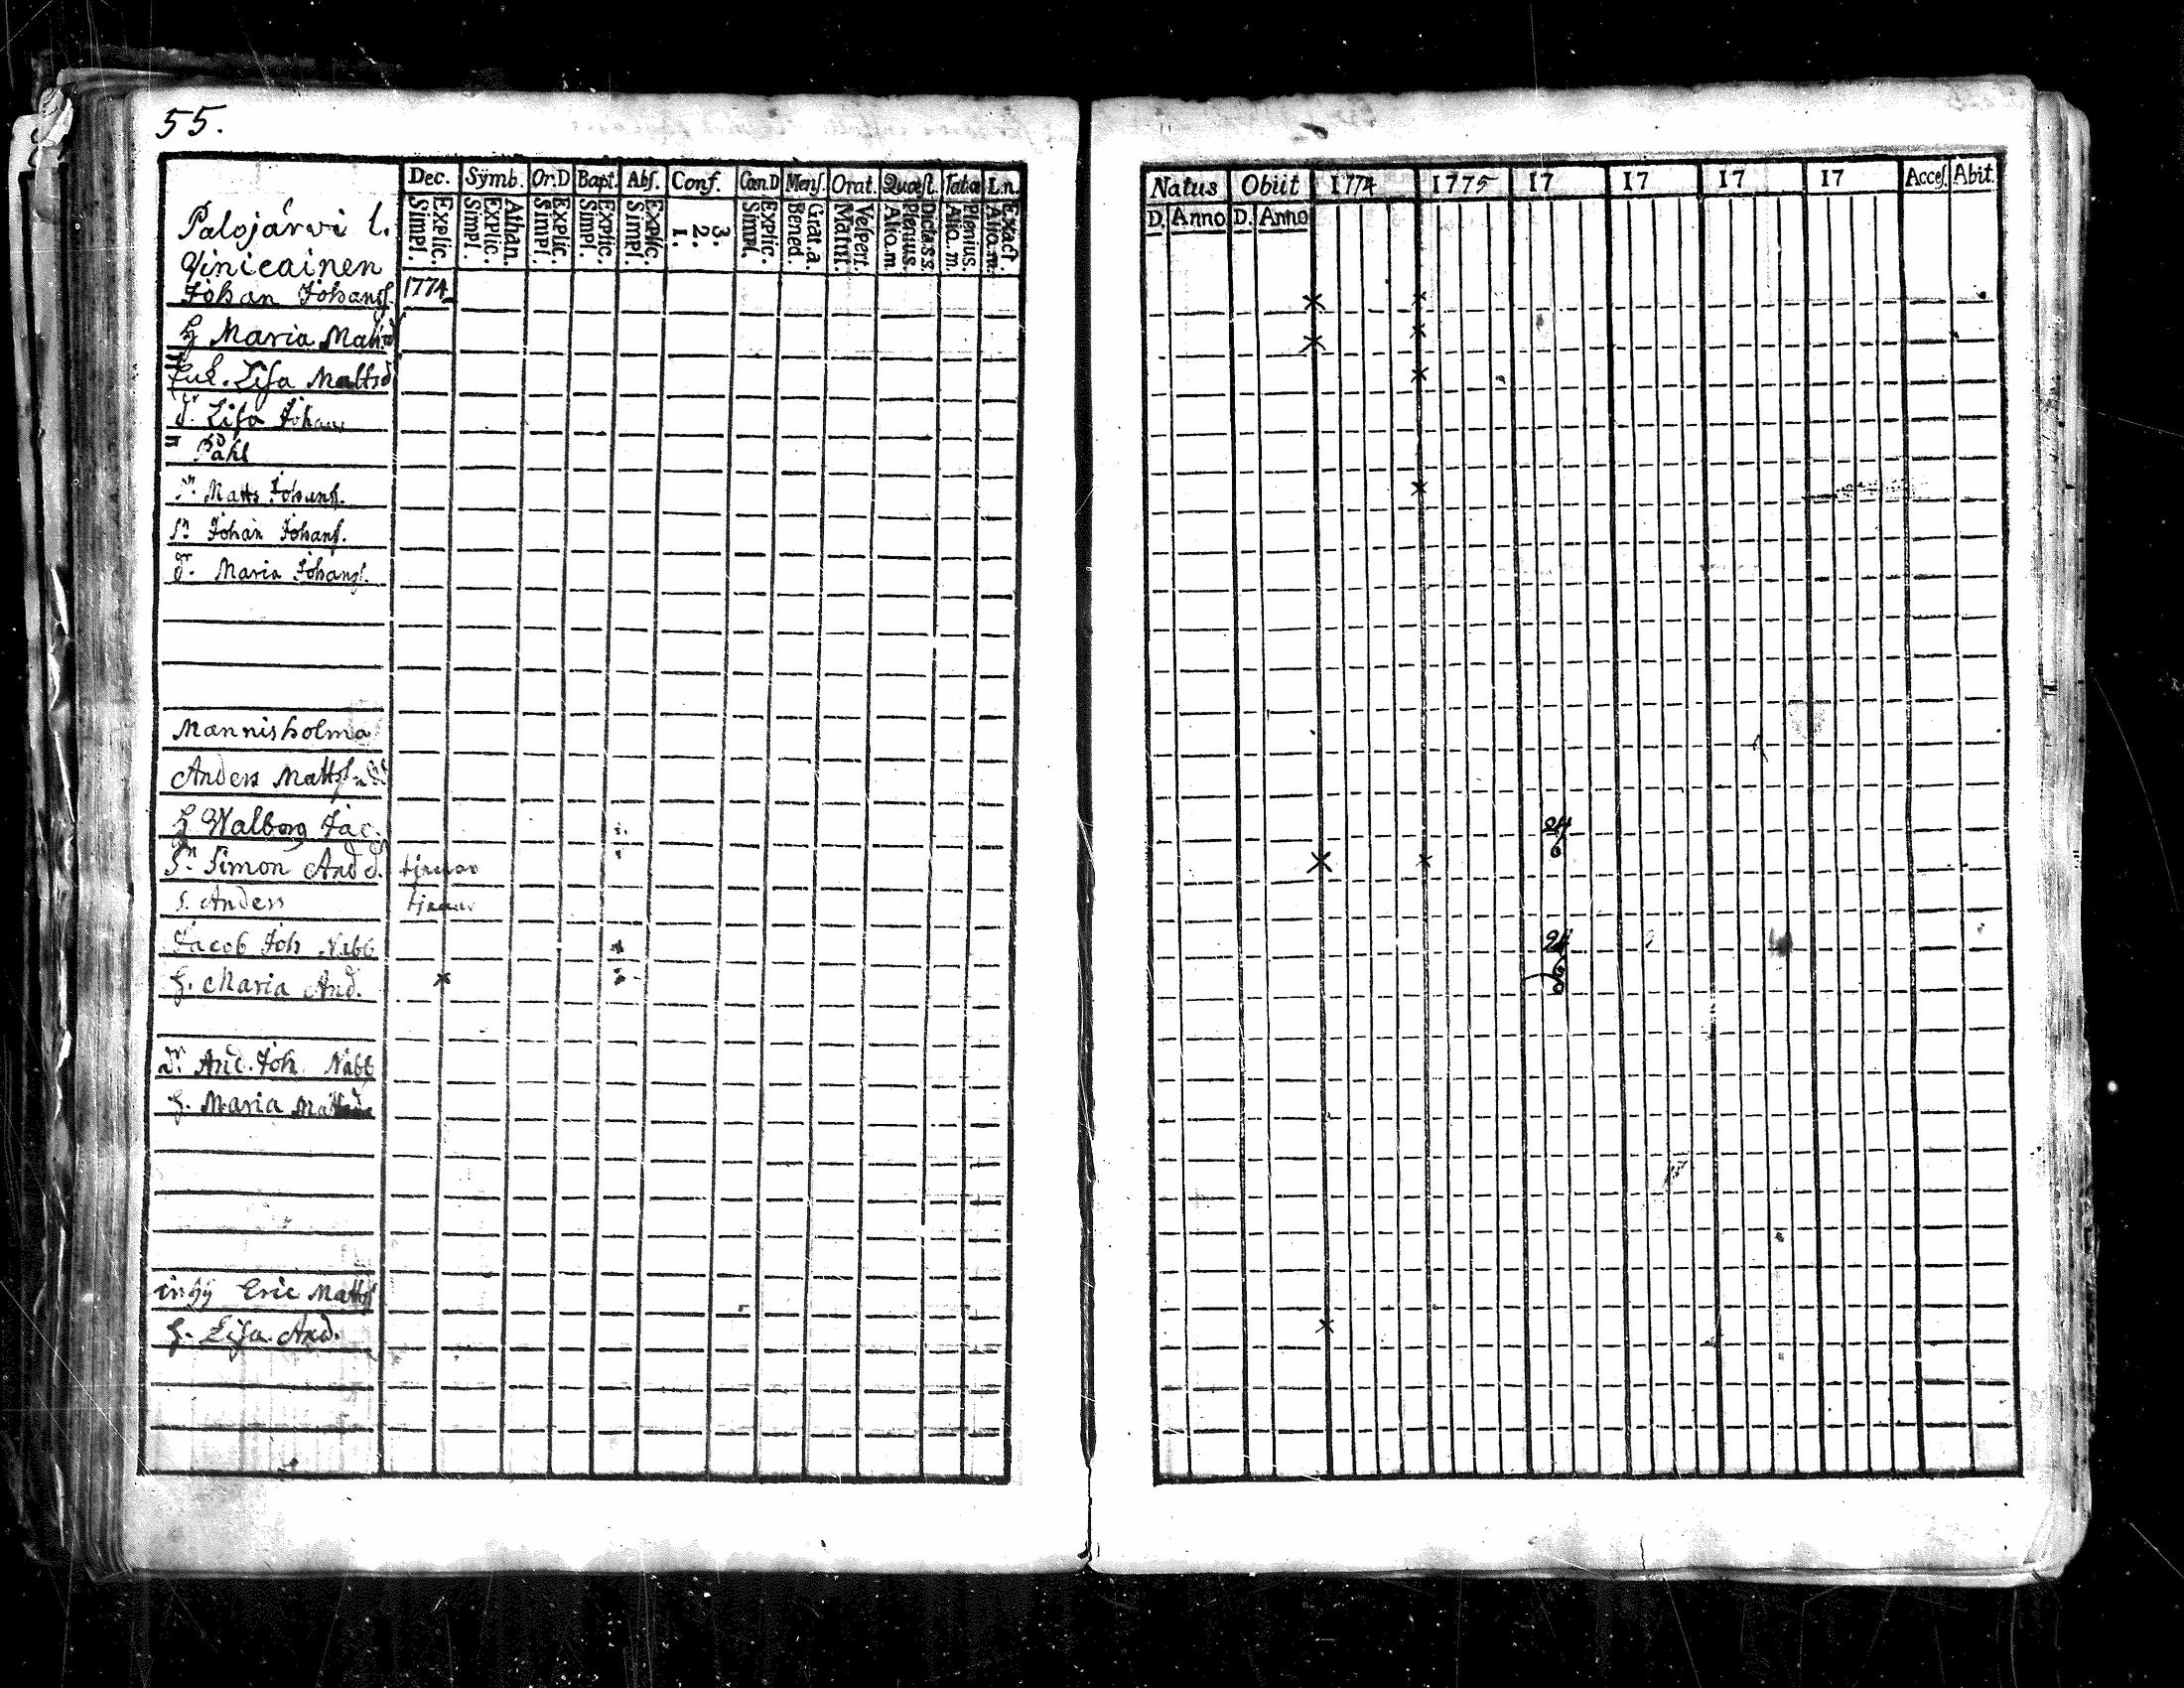 55.
Dec. Symb. Or.D Bapt. Abs. Conf. Can.D Mens. Orat. Quæst. Tabæ L.n.
Simpl. Explic. Simpl. Explic. Athan. Simpl. Explic. Simpl. Explic. Simpl. Explic. 1. 2. 3. Simpl. Explic. Bened. Grat.a. Matut. Vespert. Alio.m. Plenius. Dicta.ss. Alio.m. Plenius. Alio.m. Exact.
Palojärvi l.
Johan Johans. 1774
H Maria
Lisa Mattsd
dr. Lisa Johan
Påhl
sn. Matts Johans.
sn Johan Johans.
dr. Maria Johans.
Mannisholma
Anders Matts.
H Walborg Jac.
Sn. Simon And tjenar
S. Anders tjenar
Jacob Joh Nabb
H. Maria And.
And. Joh. Nabb
H. Maria
Eric Matts
H. Lisa And.
Natus Obiit 1774 1775 17 17 17 17 Acces. Abit.
D. Anno D. Anno